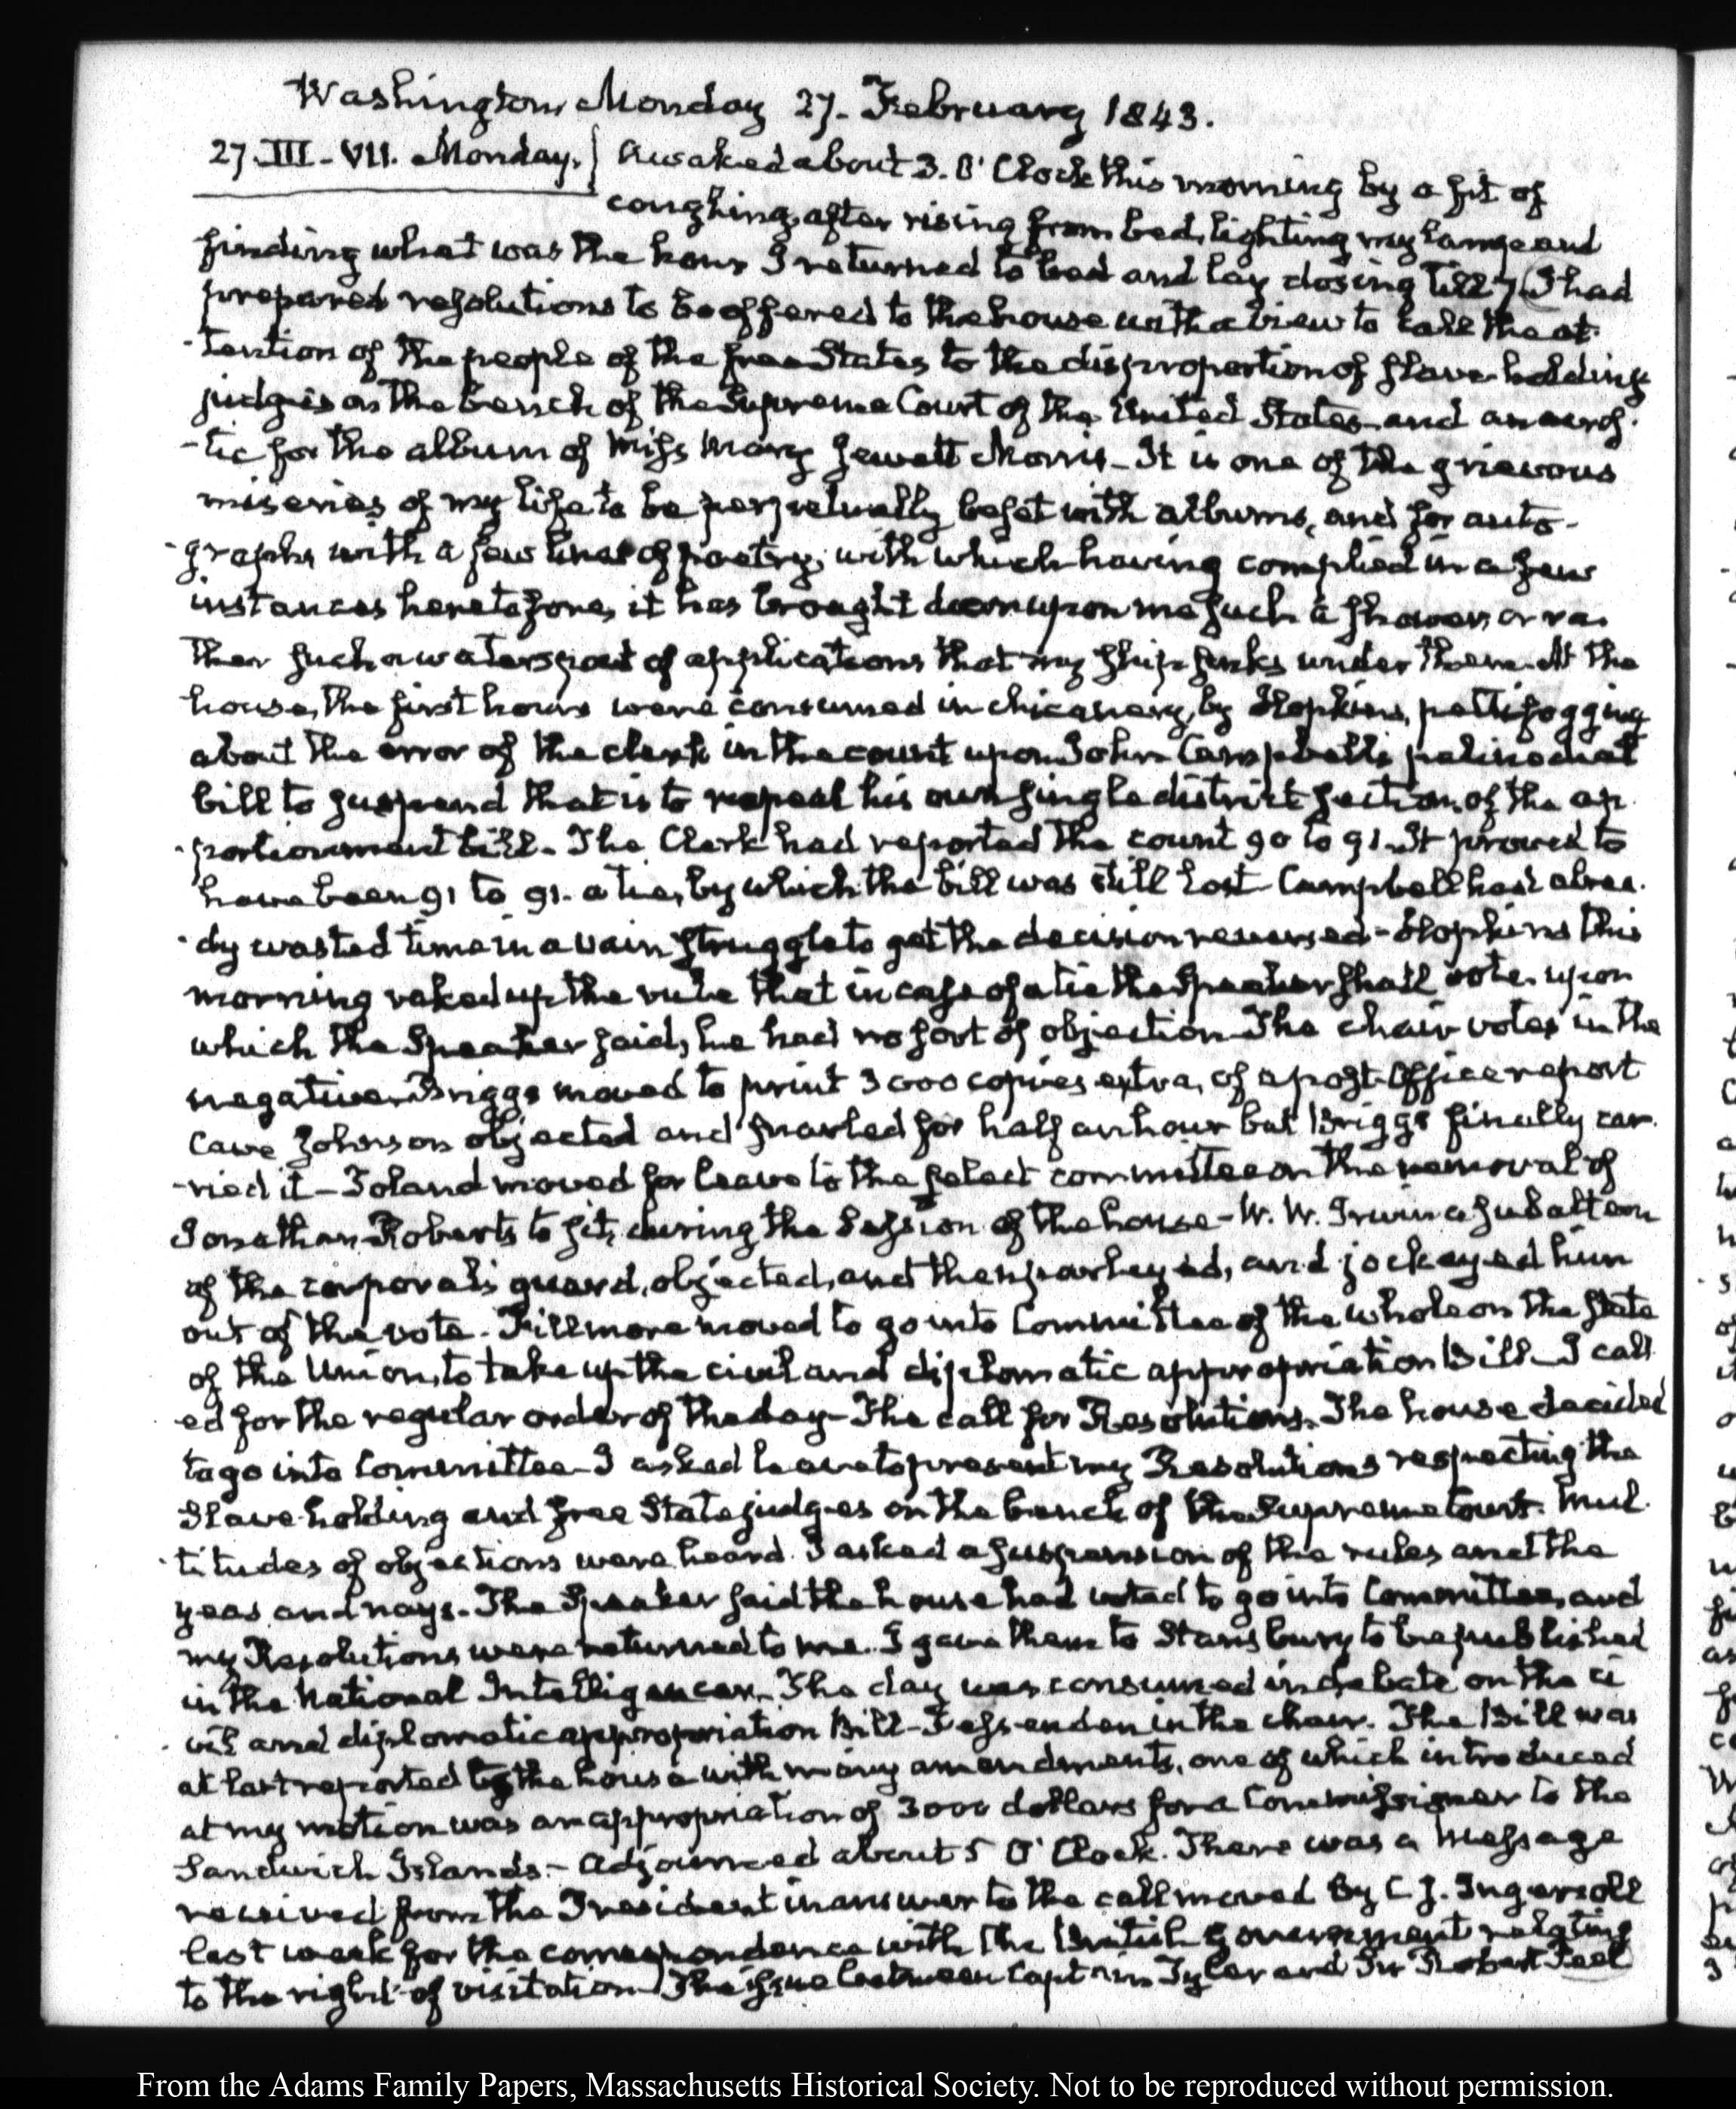 Washington Monday 27. February 1843.
27. III - VII. Monday. Awaked about 3. O' Clock this morning by a fit of
coughing, after rising from bed, lighting my lamp and
finding what was the hour I returned to bed and lay dosing till 7. I had
prepared resolutions to be offered to the house with a view to call the at-
-tention of the people of the free States to the disproportion of slave-holding
judges on the bench of the Supreme Court of the United States and an acros-
-tic for the album of Miss Mary Jewett Morris - It is one of the grievous
miseries of my life to be perpetually beset with albums, and for auto-
-graphs with a few lines of poetry, with which having complied in a few
instances heretofore, it has brought down upon me such a shower, or ra-
ther such a waterspout of applications that my ship sinks under them. At the
house, the first hours were consumed in chicanery, by Hopkins, pettifogging
about the error of the clerk in the count upon John Campbell's palinodial
bill to suspend that is to repeal his own single district section of the ap-
-portionment bill - The Clerk had reported the count 90 to 91. It proved to
have been 91 to 91. a tie, by which the bill was still lost - Campbell had alrea-
-dy wasted time in a vain struggle to get the decision reversed - Hopkins this
morning raked up the rule that in case of a tie the Speaker shall vote, upon
which the Speaker said, he had no sort of objection - The chair votes in the
negative. Briggs moved to print 3000 copies extra, of a post-Office report
Cave Johnson objected and snarled for half an hour but Briggs finally car-
-ried it - Toland moved for leave to the select committee on the removal of
Jonathan Roberts to sit, during the Session of the house - W. W. Irwin a subaltern
of the corporal's guard, objected, and then parleyed, and jockeyed him
out of the vote. Fillmore moved to go into Committee of the whole on the State
of the Union, to take up the civil and diplomatic appropriation Bill - I call-
ed for the regular order of the day - The call for Resolutions. The house decided
to go into Committee - I asked leave to present my Resolutions respecting the
Slave-holding and free State judges on the bench of the Supreme Court. Mul-
-titudes of objections were heard. I asked a suspension of the rules and the
yeas and nays. The Speaker said the house had voted to go into Committee, and
my Resolutions were returned to me. I gave them to Stansbury to be published
in the National Intelligencer - The day was consumed in debate on the ci-
-vil and diplomatic appropriation Bill - Fessenden in the chair. The Bill was
at last reported to the house with many amendments, one of which introduced
at my motion was an appropriation of 3000 dollars for a Commissioner to the
Sandwich Islands - Adjourned about 5 O' Clock. There was a Message
received from the President in answer to the call moved by C. J. Ingersoll
last week for the correspondence with the British Government relating
to the right of visitation - The issue between Captain Tyler and Sir Robert Peel
From the Adams Family Papers, Massachusetts Historical Society. Not to be reproduced without permission.